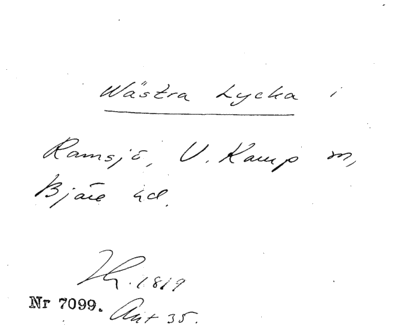 Wästra Lycka i
Ramsjö, V. Karup sn,
Bjäre hd.
Th. 1819
Nr 7099. Ant 35.